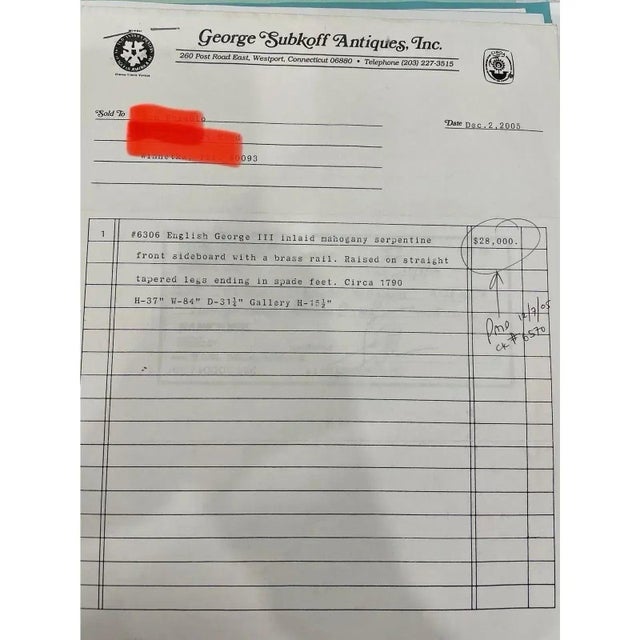 George Subkoff Antiques, Inc.
260 Post Road East, Westport, Connecticut 06880 • Telephone (203) 227-3515
Sold To
Date Dec.2,2005
60093
1 #6306 English George III inlaid mahogany serpentine $28,000.
front sideboard with a brass rail. Raised on straight
tapered legs ending in spade feet. Circa 1790
H-37" W-84" D-31½" Gallery H-15½"
12/7/05
ck # 6570